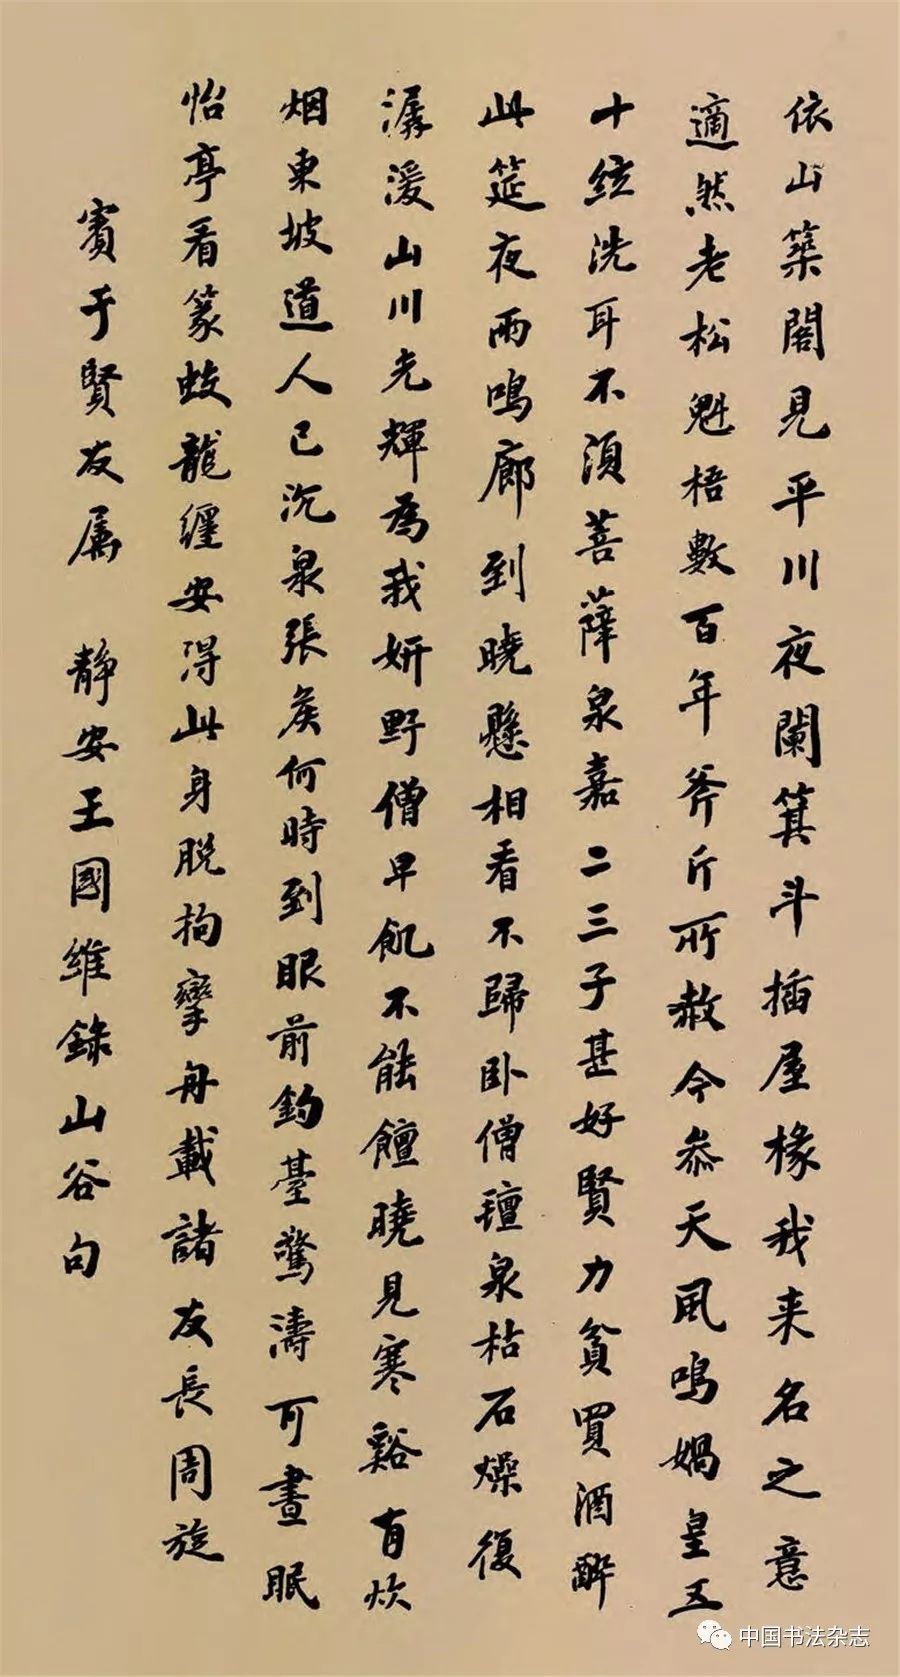 依山築閣見平川夜闌箕斗插屋椽我来名之意
適然老松魁梧數百年斧斤所赦今叅天風鳴媧皇五
十絃洗耳不須菩薩泉嘉二三子甚好賢力貧買酒醉
此筵夜雨鳴廊到曉懸相看不歸卧僧氊泉枯石燥復
潺湲山川光輝為我妍野僧早飢不能饘曉見寒谿有炊
烟東坡道人已沉泉張矦何時到眼前釣臺驚濤可晝眠
怡亭看篆蛟龍纏安得此身脱拘攣舟載諸友長周旋
賓于賢友属 静安王國維錄山谷句
中国书法杂志